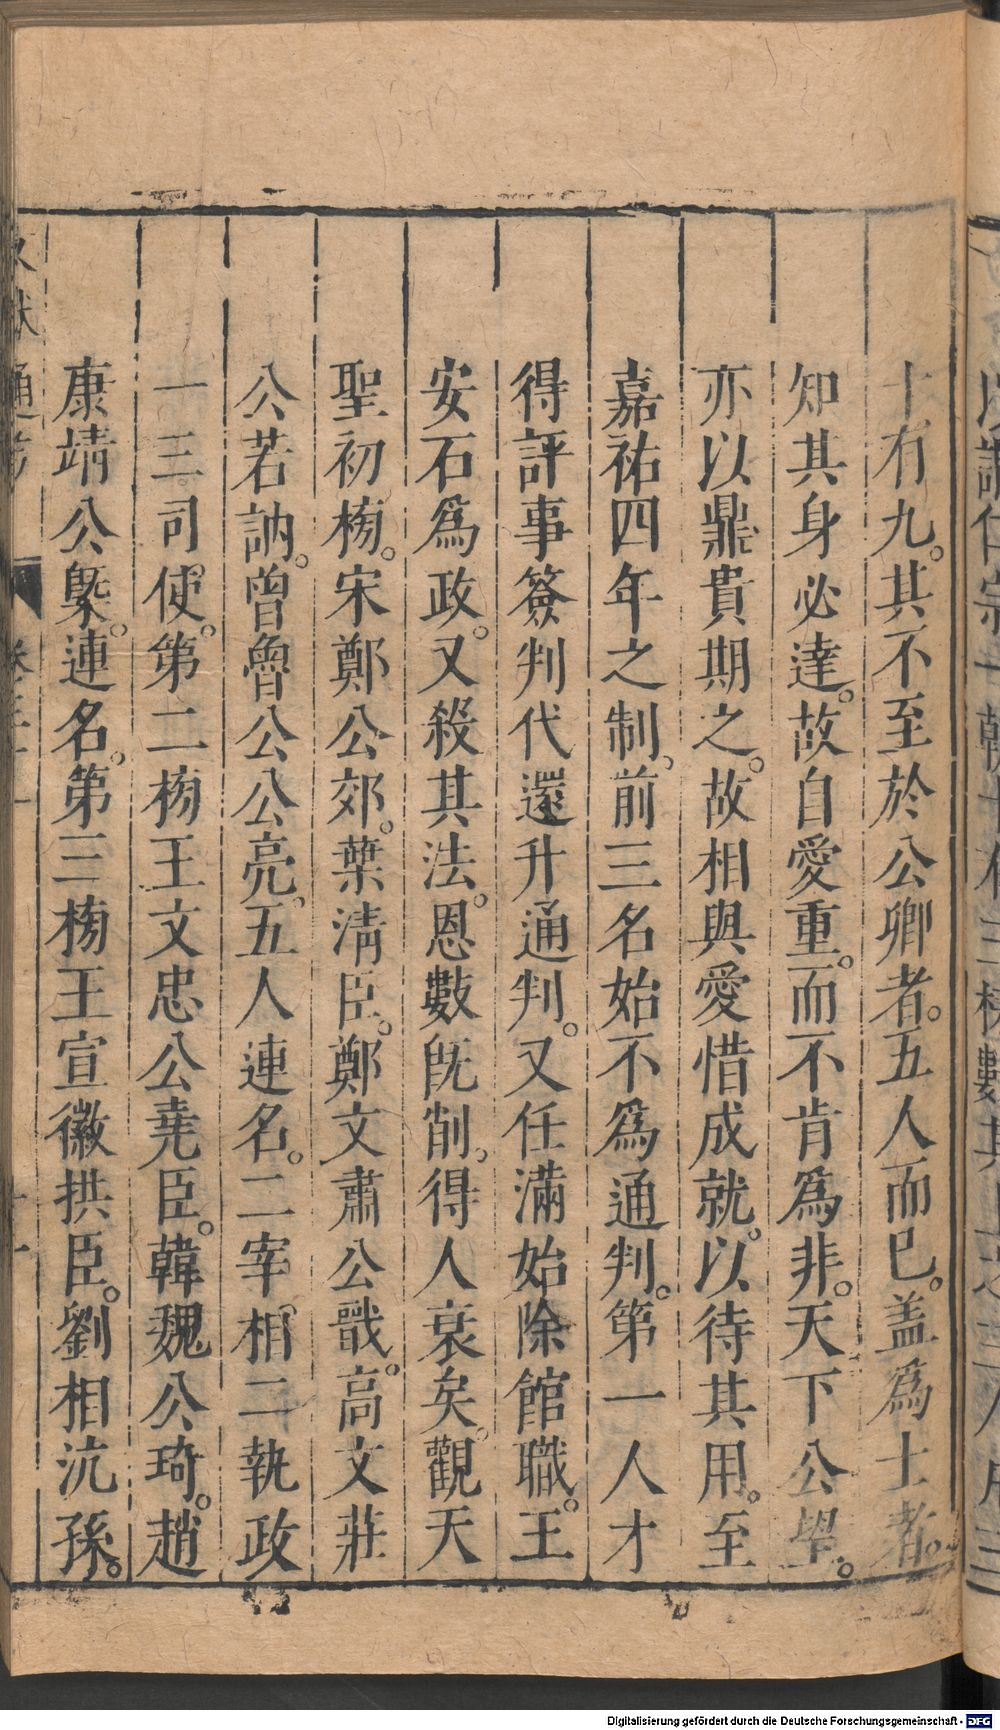 十有九。其不至於公卿者。五人而已。盖爲士者。
知其身必達。故自愛重。而不肯爲非。天下公望。
亦以鼎貴期之。故相與愛惜成就。以待其用。至
嘉祐四年之制。前三名始不爲通判。第一人才
得評事簽判代還升通判。又任滿始除館職。王
安石爲政。又殺其法。恩數旣削。得人衰矣。觀天
聖初榜。宋鄭公郊。葉淸臣。鄭文肅公戩。高文莊
公若訥。曾魯公公亮。五人連名。二宰相。二執政
一三司使。第二榜王文忠公堯臣。韓魏公琦。趙
康靖公槩。連名。第三榜王宣徽拱臣。劉相沆孫。
文獻通考
Digitalisierung gefördert durch die Deutsche Forschungsgemeinschaft - DFG